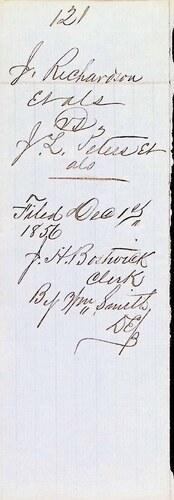 121
J. Richardson
Et als
vs,
J. L. Peters Et
als
Filed Dec 1st
1856
J. H. Bostwick
Clerk
By Wm Smith
DC